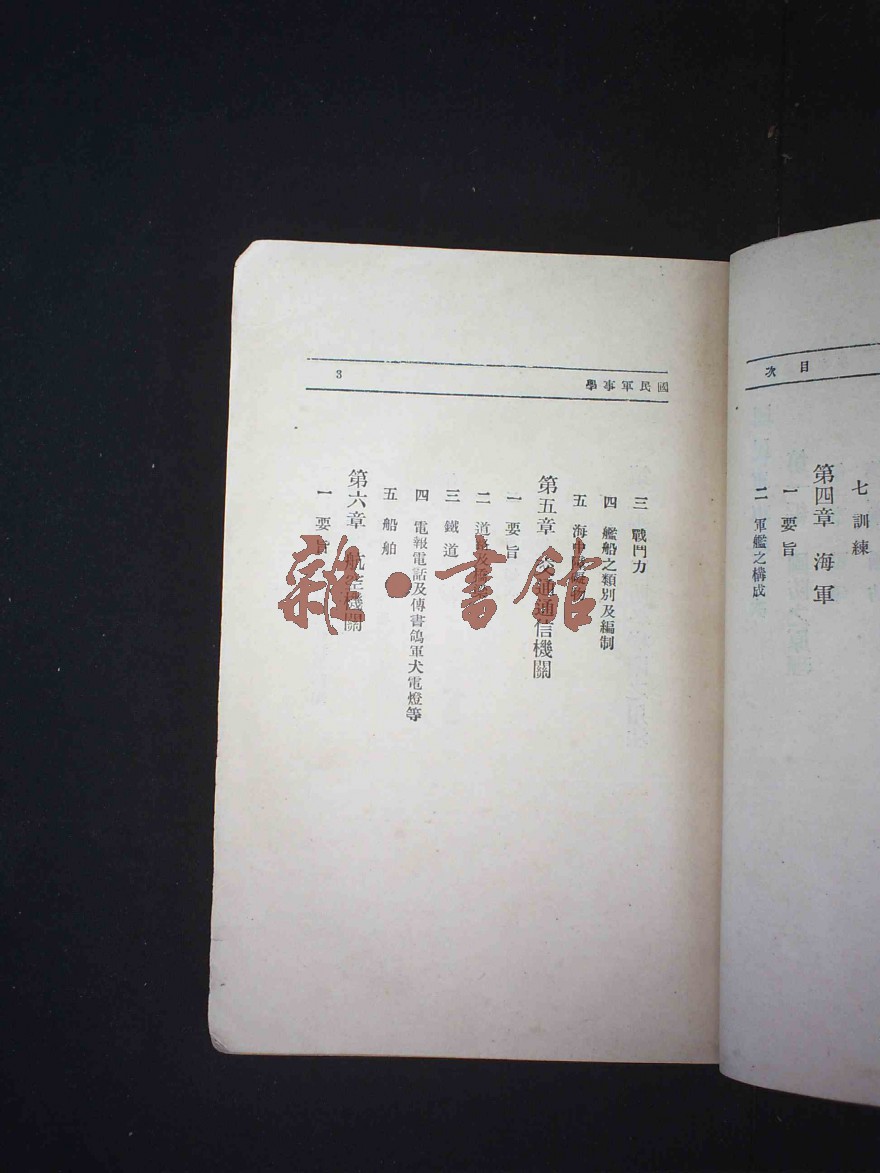 目次
七 訓練
第四章 海軍
一 要旨
二 軍艦之構成
國民軍事學
3
三 戰鬥力
四 艦船之類別及編制
五 海中障礙物
第五章 交通通信機關
一 要旨
二 道路及橋梁
三 鐵道
四 電報電話及傳書鴿軍犬電燈等
五 船舶
第六章 航空機關
一 要旨
雜·書館